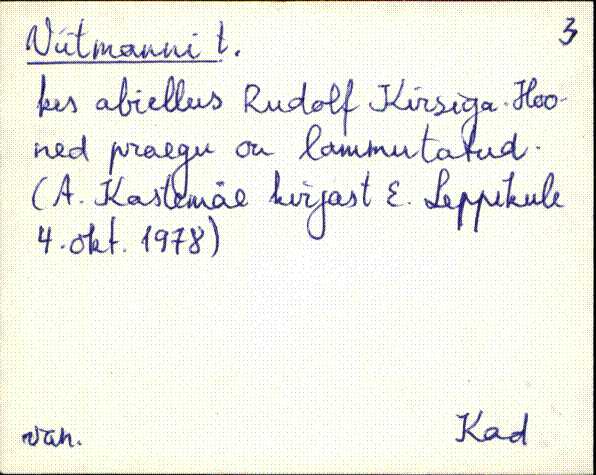 Viitmanni t. 3
kes abiellus Rudolf Kirsiga. Hoo-
ned praegu on lammutatud.
(A. Kastemäe kirjast E. Leppikule
4. okt. 1978)
van. Kad